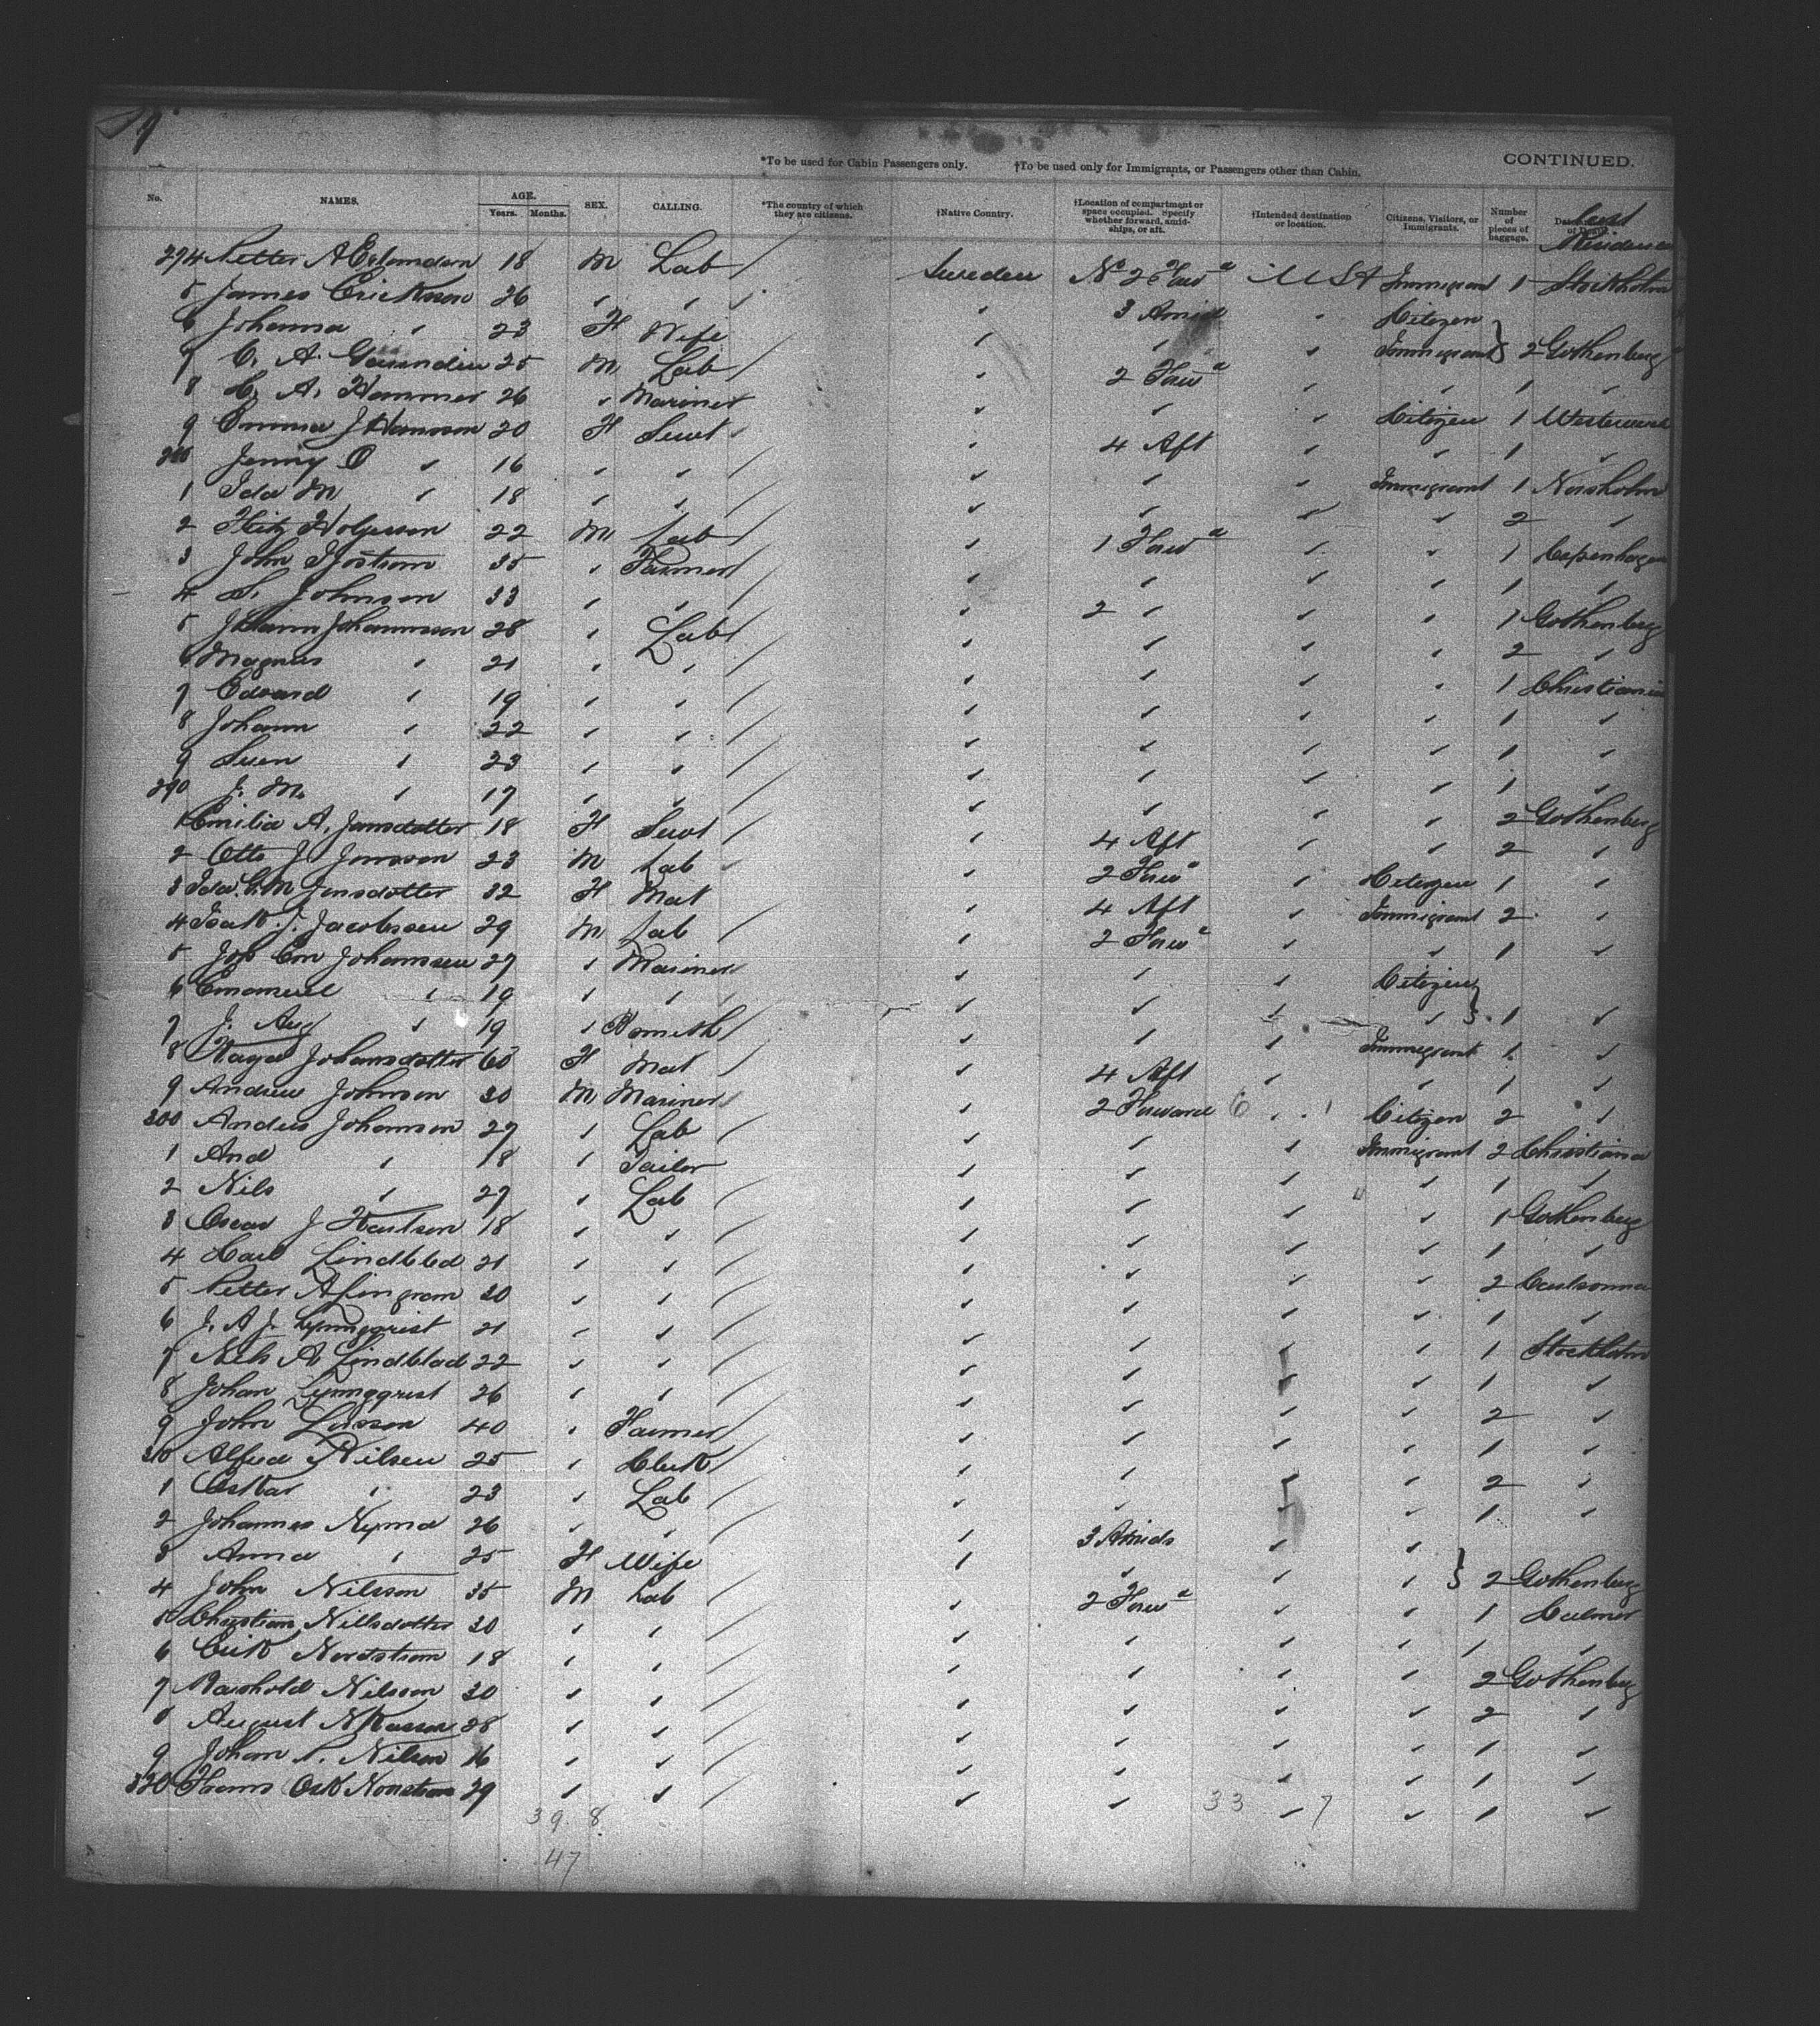 9
*To be used for Cabin Passengers only. †To be used only for Immigrants, or Passengers other than Cabin. CONTINUED.
No. NAMES. AGE. Years. Months. SEX. CALLING. *The country of which they are citizens. †Native Country. †Location of compartment or space occupied. Specify whether forward, amidships, or aft. †Intended destination or location. Citizens, Visitors, or Immigrants. Number of pieces of baggage. Last Residence
Petter A 18 M Lab Sweden No 2 Forwd USA Immigrant 1 Stockholm
5 James Erickson 26 " " " 3 Amid " Citizen
6 Johanna " 23 F Wife " " " Immigrant } 2 Gothenburg
7 C. A. 25 M Lab " 2 Forwd " " 1 "
8 A. Hammer 26 " Mariner " " " Citizen 1
9 Emma J Hansson 20 F Servt " 4 Aft " " 1 "
280 Jenny O " 16 " " " " " Immigrant 1 Norsholm
1 Ida M " 18 " " " " " " 2 "
2 Holgersson 22 M Lab " 1 Forwd " " 1 Copenhagen
3 John Sjostrom 35 " Farmer " " " " 1 "
4 S. Johnson 33 " " " 2 " " " 1 Gothenburg
5 Johannsson 28 " Lab " " " " 2 "
6 Magnus " 21 " " " " " " 1 Christiania
7 Edvard " 19 " " " " " " 1 "
8 Johann " 22 " " " " " " 1 "
9 Sven " 23 " " " " " " 1 "
290 J. M. " 17 " " " " " " 2 Gothenburg
1 Emilia A. Jansdotter 18 F Servt " 4 Aft " " 2 "
2 Otto J. Jonsson 23 M Lab " 2 Forwd " Citizen 1 "
3 Ida C. M Jonsdotter 32 F Mat " 4 Aft " Immigrant 2 "
4 Isak J. Jacobssen 29 M Lab " 2 Forwd " " 1 "
5 Jos Em Johanssen 27 " Mariner " " " Citizen
6 Emanuel " 19 " " " " " " } 1 "
7 J. Aug " 19 " Bsmith " " " Immigrant 1 "
8 Johansdotter 60 F Mat " 4 Aft " " 1 "
9 Andrew Johnson 30 M Mariner " 2 Forward 6 " 1 Citizen 2 "
300 Anders Johanson 27 " Lab " " " Immigrant 2 Christiana
1 And " 18 " Tailor " " " " 1 "
2 Nils " 27 " Lab " " " " 1 Gothenburg
3 Oscar J 18 " " " " " " 1 "
4 Carl Lindblad 21 " " " " " " 2
5 Petter 20 " " " " " " 1 "
6 J. A J. Lynnqvist 21 " " " " " " 1 Stockholm
7 Nils A Lindblad 22 " " " " " " 1 "
8 Johan Lynnqqvist 26 " " " " " " 2 "
9 John Larsson 40 " Farmer " " " " 1 "
310 Alfred Nilsen 25 " Clerk " " " " 2 "
1 Oskar " 23 " Lab " " " " 1 "
2 Johannes Nyma 26 " " " 3 Amids " "
3 Anna " 25 F Wife " " " " } 2 Gothenburg
4 John Nilsson 35 M Lab " 2 Forwd " " 1 Calmer
5 Christian Nillsdotter 30 " " " " " " 1 "
6 Erik Nordstrom 18 " " " " " " 2 Gothenburg
7 Nilsson 30 " " " " " " 2 "
8 August 28 " " " " " " 1 "
9 Johan P. Nilson 16 " " " " " " 1 "
320 29 " " " " " " 1 "
39 8 33 7
47